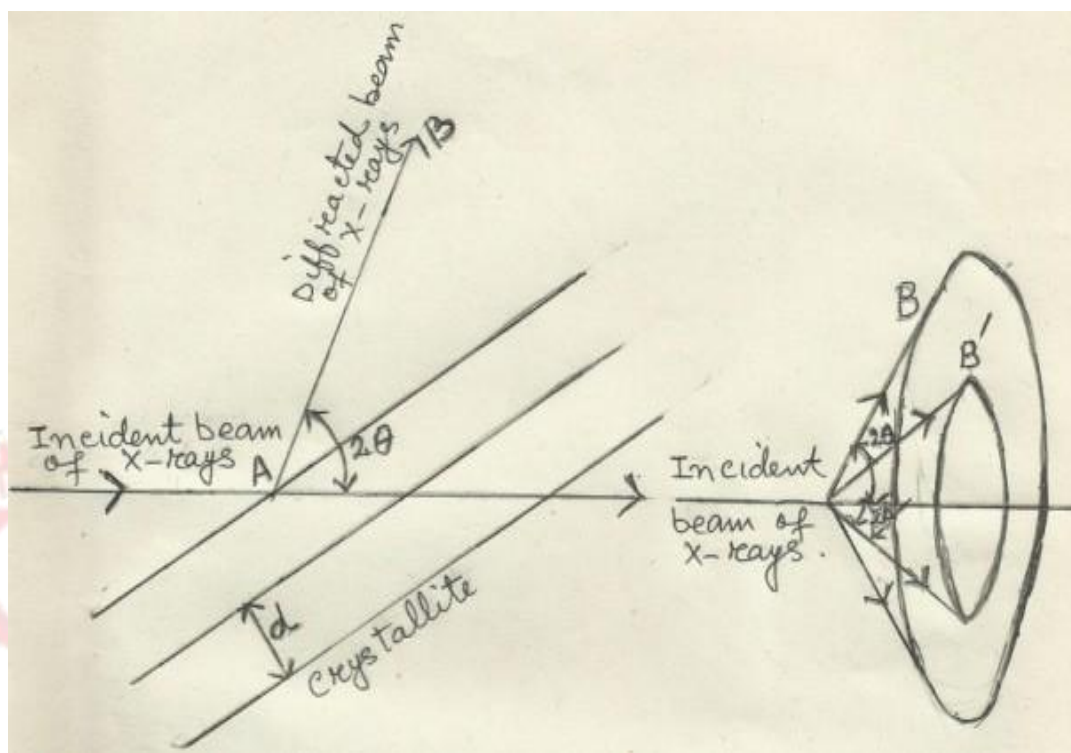 Diffracted beam
of x-rays
B
Incident beam
of x-rays
A
2θ
d
Crystallite
B
B'
2θ
2θ
Incident
beam of
x-rays.